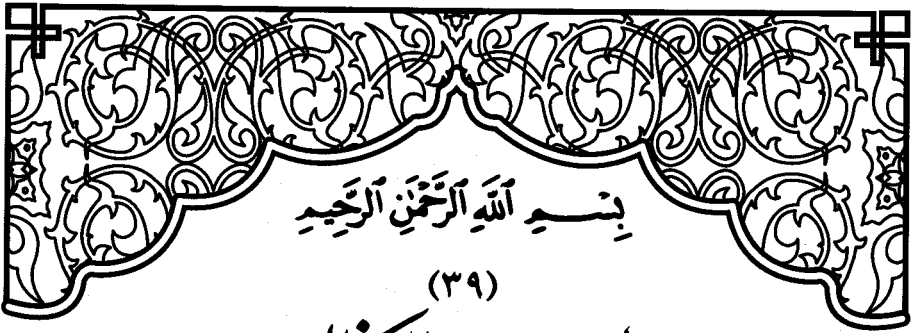 بِسْمِ ٱللَّهِ ٱلرَّحْمَٰنِ ٱلرَّحِيمِ
(٣٩)